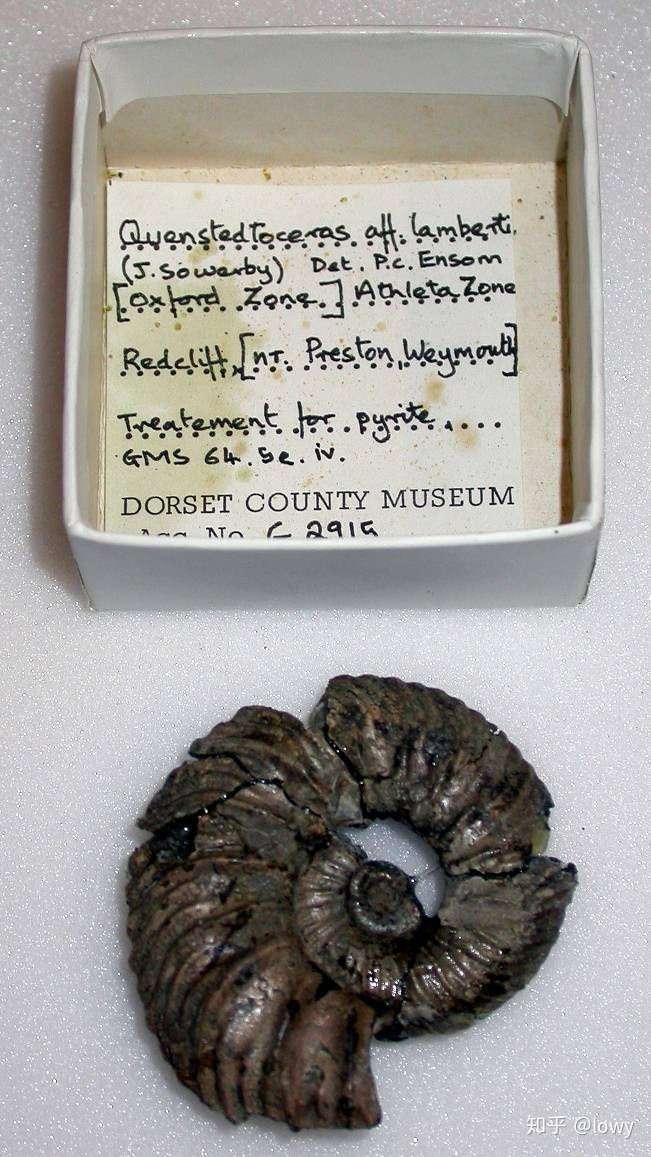 Quenstedtoceras aff. lamberti.
(J. Sowerby) Det. P.C. Ensom
[Oxford Zone.] Athleta Zone
Redcliff, [nr. Preston, Weymouth]
Treatement for pyrite....
GMS 64. 5e. iv.
DORSET COUNTY MUSEUM
Acc. No. G 2915
知乎 @lowy